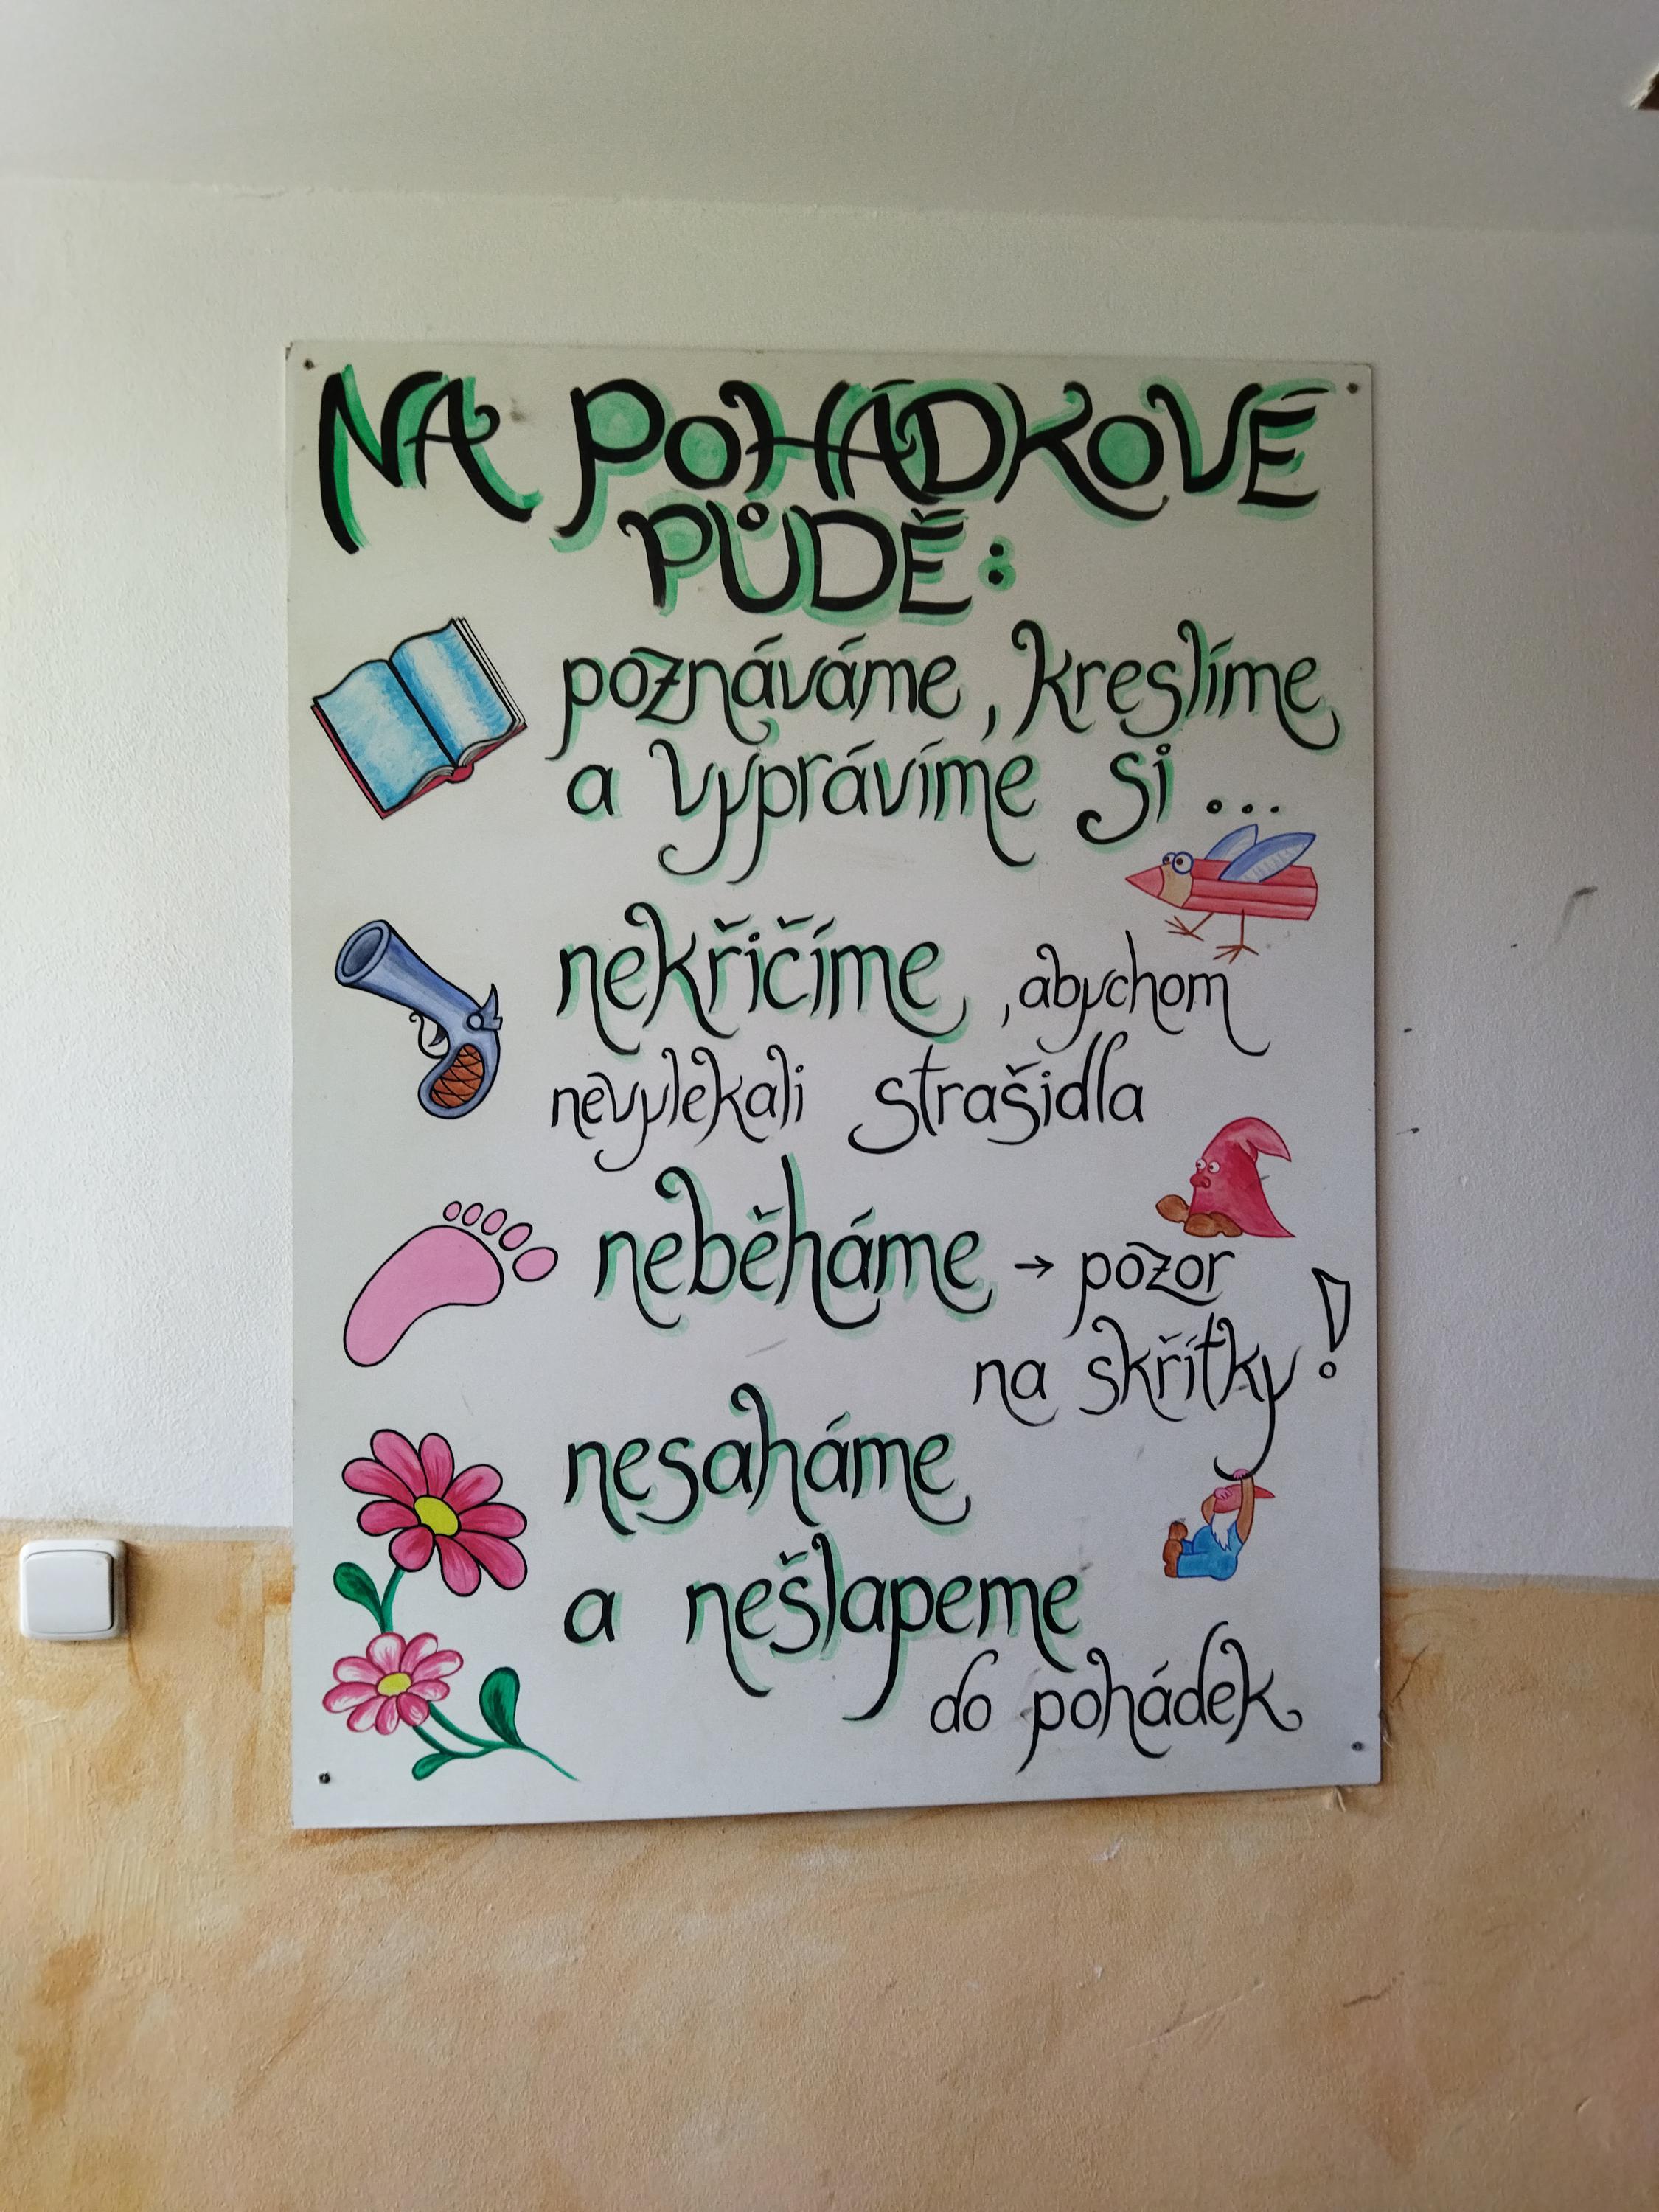 NA POHÁDKOVÉ
PŮDĚ:
poznáváme, kreslíme
a vyprávíme si...
nekřičíme, abychom
nevylekali strašidla
neběháme → pozor
na skřítky!
nesaháme
a nešlapeme
do pohádek